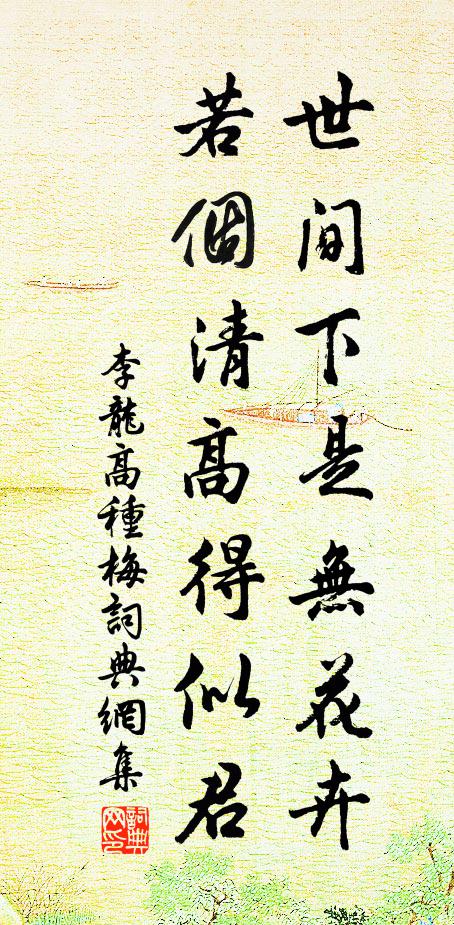 世間下是無花卉
若個清高得似君
李龍高種梅詞典網集
詞典
网印